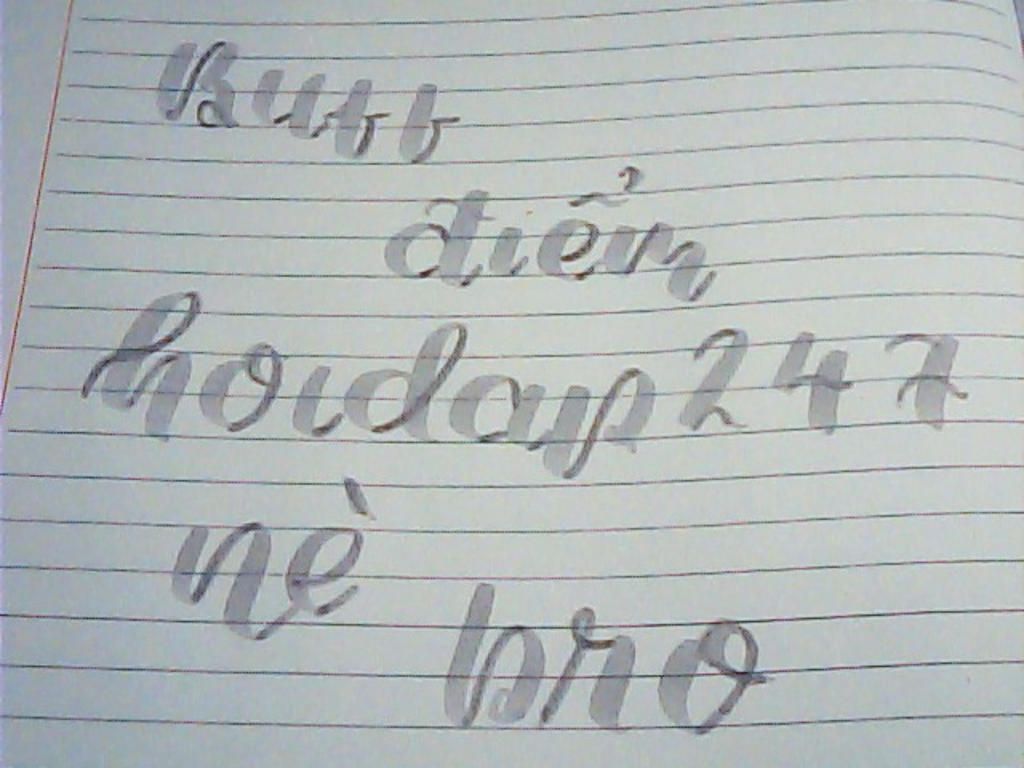 Buff
điểm
hoidap247
nè
bro